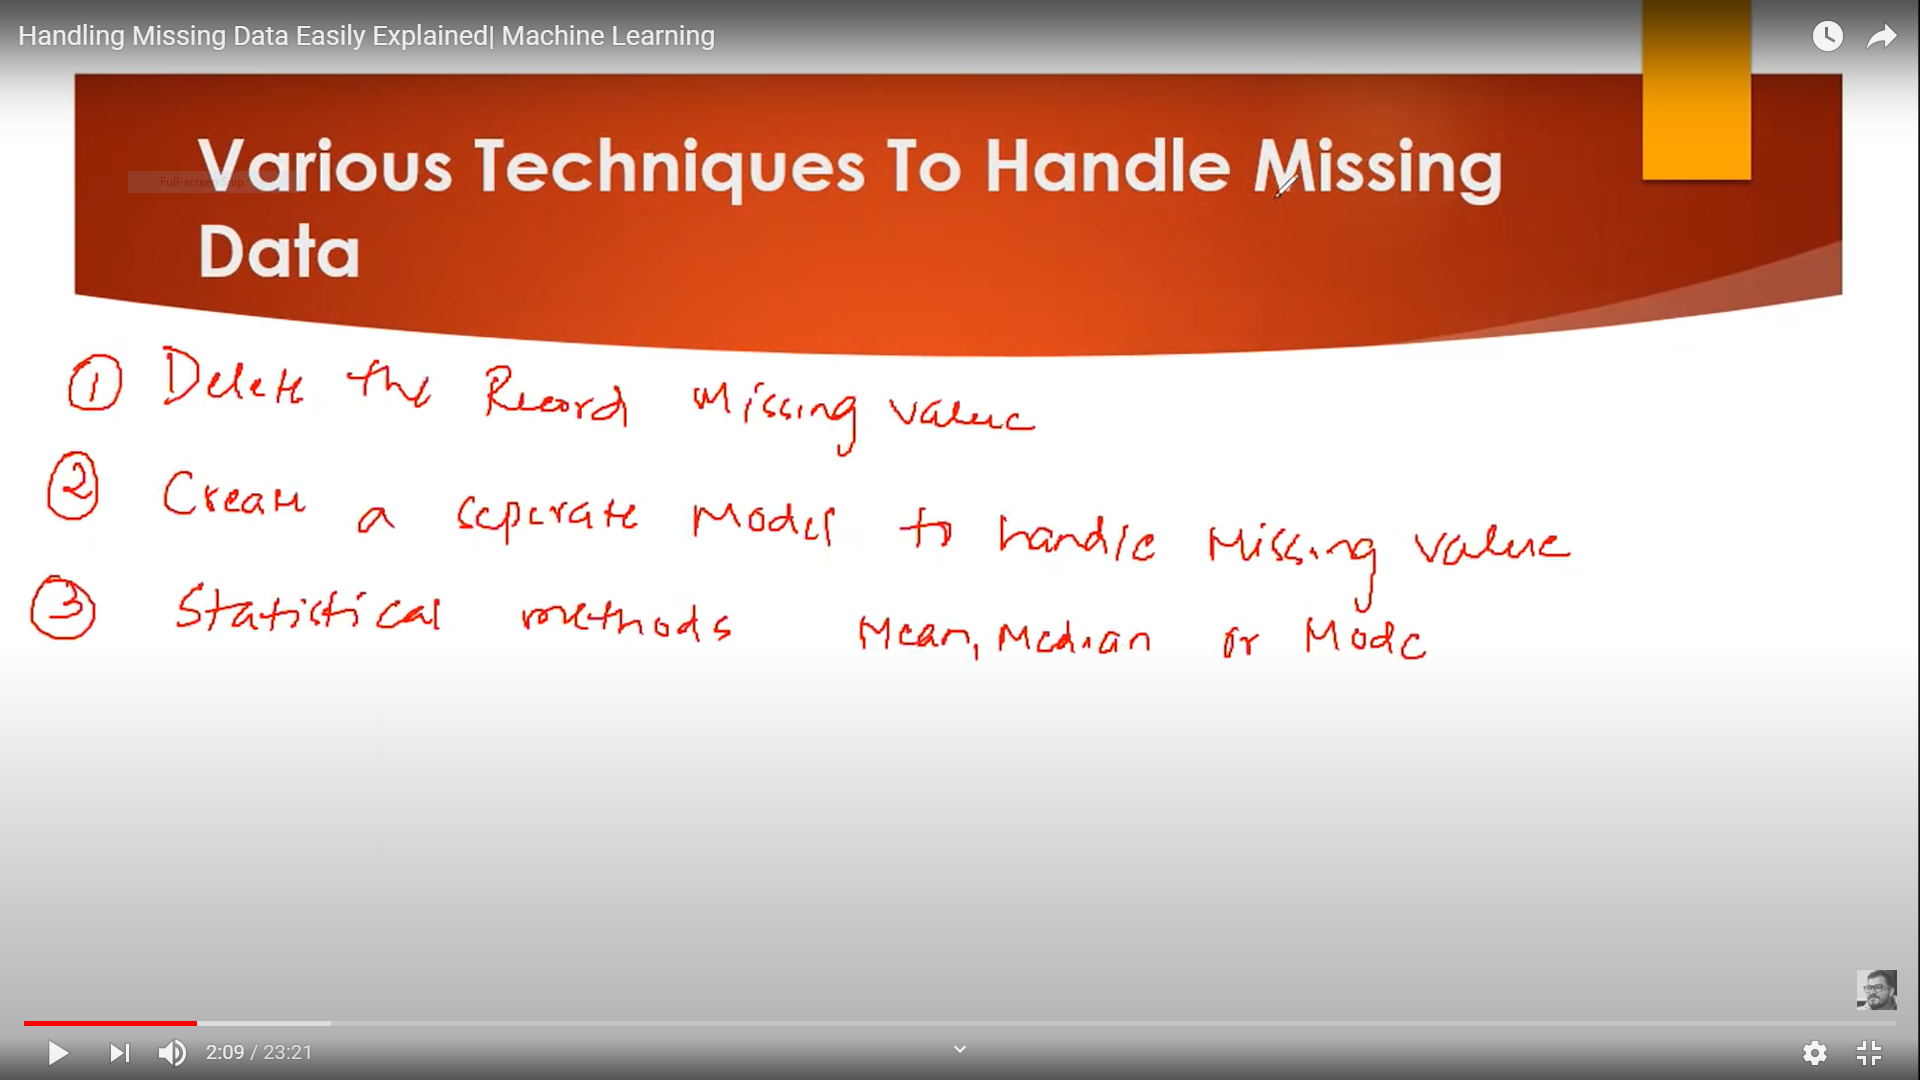 Handling Missing Data Easily Explained| Machine Learning
Full-screen Snip
Various Techniques To Handle Missing
Data
① Delete the Record Missing value
② Create a seperate Model to handle Missing value
③ Statistical methods Mean, Median or Mode
2:09 / 23:21